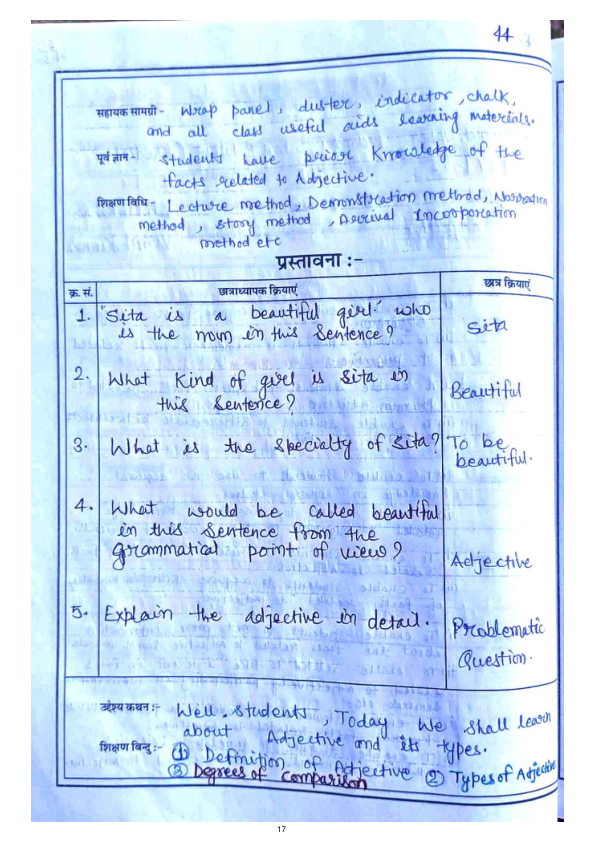 44
सहायक सामग्री - Wrap panel, duster, indicator, chalk,
and all class useful aids learning materials.
पूर्व ज्ञान - Students have prior Knowledge of the
facts related to Adjective.
शिक्षण विधि - Lecture method, Demonstration method, Narration
method, story method, Incorporation
method etc
प्रस्तावना :-
क्र. सं. छात्राध्यापक क्रियाएं छात्र क्रियाएं
1. "Sita is a beautiful girl" who
is the noun in this Sentence? Sita
2. What Kind of girl is Sita in
this Sentence? Beautiful
3. What is the Specialty of Sita? To be
beautiful.
4. What would be called beautiful
in this Sentence from the
grammatical point of view? Adjective
5. Explain the adjective in detail. Problematic
Question.
उद्देश्य कथन :- Well, Students, Today we shall learn
about Adjective and its types.
शिक्षण बिन्दु :- (1) Definition of Adjective (2) Types of Adjective
(3) Degrees of Comparison
17